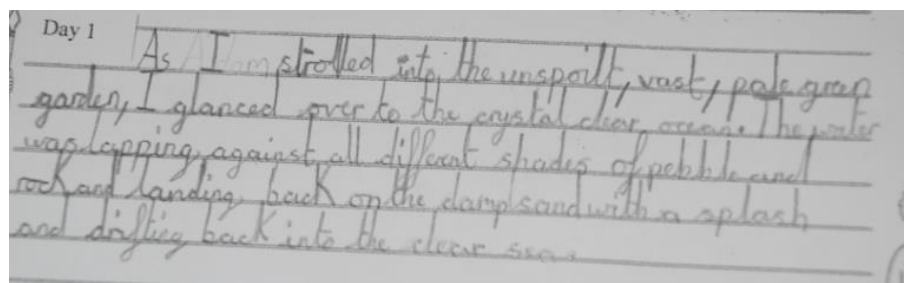 Day 1
As I strolled into the unspoilt, vast, pale green
garden, I glanced over to the crystal clear ocean. The water
was lapping against all different shades of pebble and
rock and landing back on the damp sand with a splash
and drifting back into the clear sea.